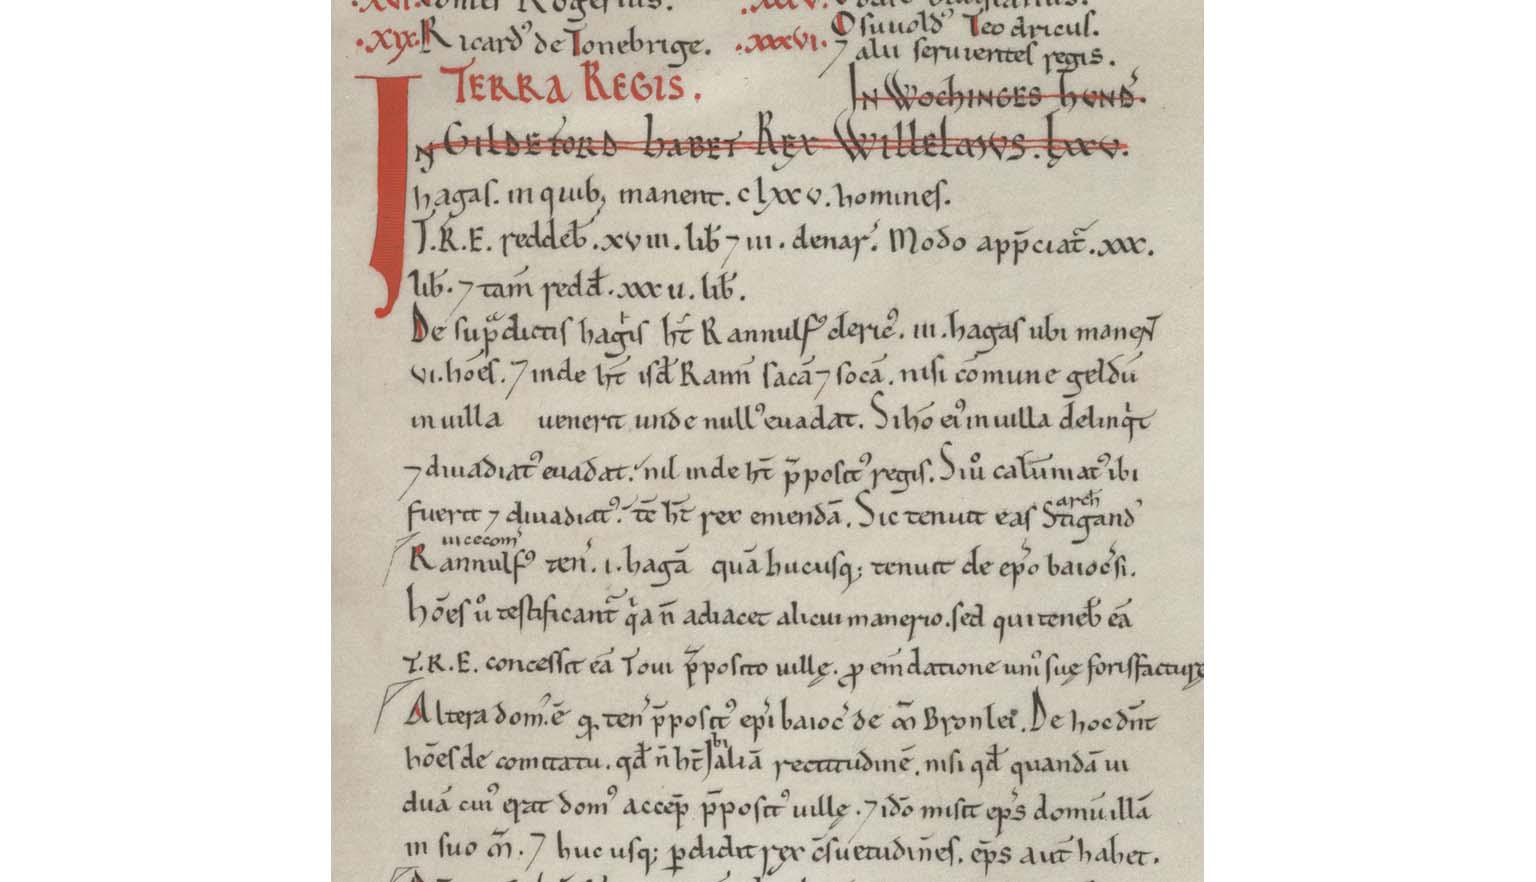 .XVI. Comes Rogerius.
.XIX. Ricard᷒ de Tonebrige.
.XXXVI. Osuuold᷒ Teodricus.
⁊ alii seruientes regis.
TERRA REGIS.
IN WOCHINGES HUND'.
IN GILDEFORD HABET REX WILLELMUS. LXXV.
hagas. in quib; manent. clxxv. homines.
T.R.E. reddeb̄ .xviii. lib̄ ⁊ iii. denar'. Modo app̄ciat᷑ .xxx.
lib̄. ⁊ tam̄ redd̄. xxxii. lib̄.
De sup̄dictis hagis ht̄ Rannulf᷒ cleric᷒. iii. hagas ubi maneN̄
vi. hōes. ⁊ inde ht̄ isd̄ Rann̄ sacā ⁊ socā. nisi cōmune geldū
in uilla uenerit unde null᷒ euadat. Si hō ei᷒ in uilla delinqⁱt
⁊ diuadiat᷒ euadat. nil inde ht̄ p̄posit᷒ regis. Si u͛o calūmiat᷒ ibi
fuerit ⁊ diuadiat᷒. tc̄ ht̄ rex emendā. Sic tenuit eas Stigand᷒ arch̄
Rannulf᷒ uicecom' ten'. i. hagā quā hucusq; tenuit de ep̄o baioc̄si.
Hōes u͛o testificant᷑ qⁱa n̄ adiacet alicui manerio. sed qui teneb̄ eā
T.R.E. concessit eā Toui p̄posito uillę. ꝓ em̄datione uni᷒ suę forisfacturę
Altera dom᷒. ē q̄ ten' p̄posit᷒ ep̄i baioc̄ de m̄ Bronlei. De hoc dn̄t
hōes de comitatu. qd̄ n̄ ht̄ ibi aliā rectitudinē. nisi qd̄ quandā ui
duā cui᷒ erat dom᷒ accep̄ p̄posit᷒ uillę. ⁊ idō misit ep̄s domū illā
in suo m̄. ⁊ huc usq; ꝑdidit rex c̄suetudin̄es. ep̄s aut̄ habet.